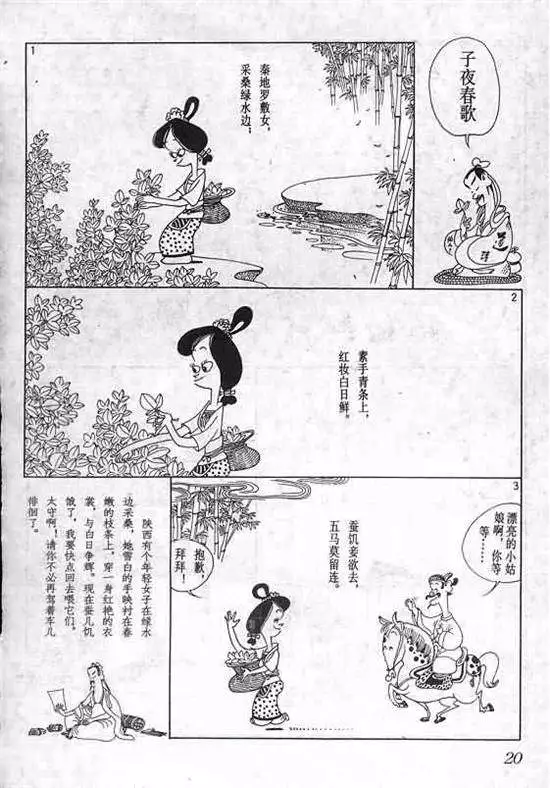 子夜春歌
1
秦地罗敷女，
采桑绿水边；
2
素手青条上，
红妆白日鲜。
3
漂亮的小姑
娘啊，你等
等……
蚕饥妾欲去，
五马莫留连。
抱歉，
拜拜！
陕西有个年轻女子在绿水
边采桑，她雪白的手映衬在春
嫩的枝条上，穿一身红艳的衣
裳，与白日争辉。现在蚕儿饥
饿了，我要快点回去喂它们。
太守啊！请你不必再驾着车儿
徘徊了。
20